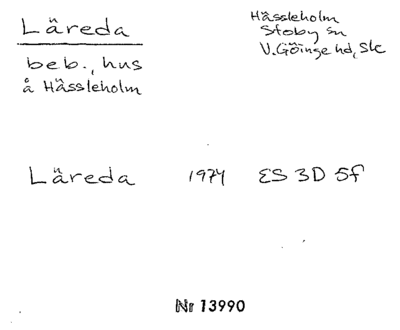 Läreda
beb., hus
å Hässleholm
Hässleholm
Stoby sn
V.Göinge hd, Skc
Läreda 1974 ES 3D 5f
Nr 13990